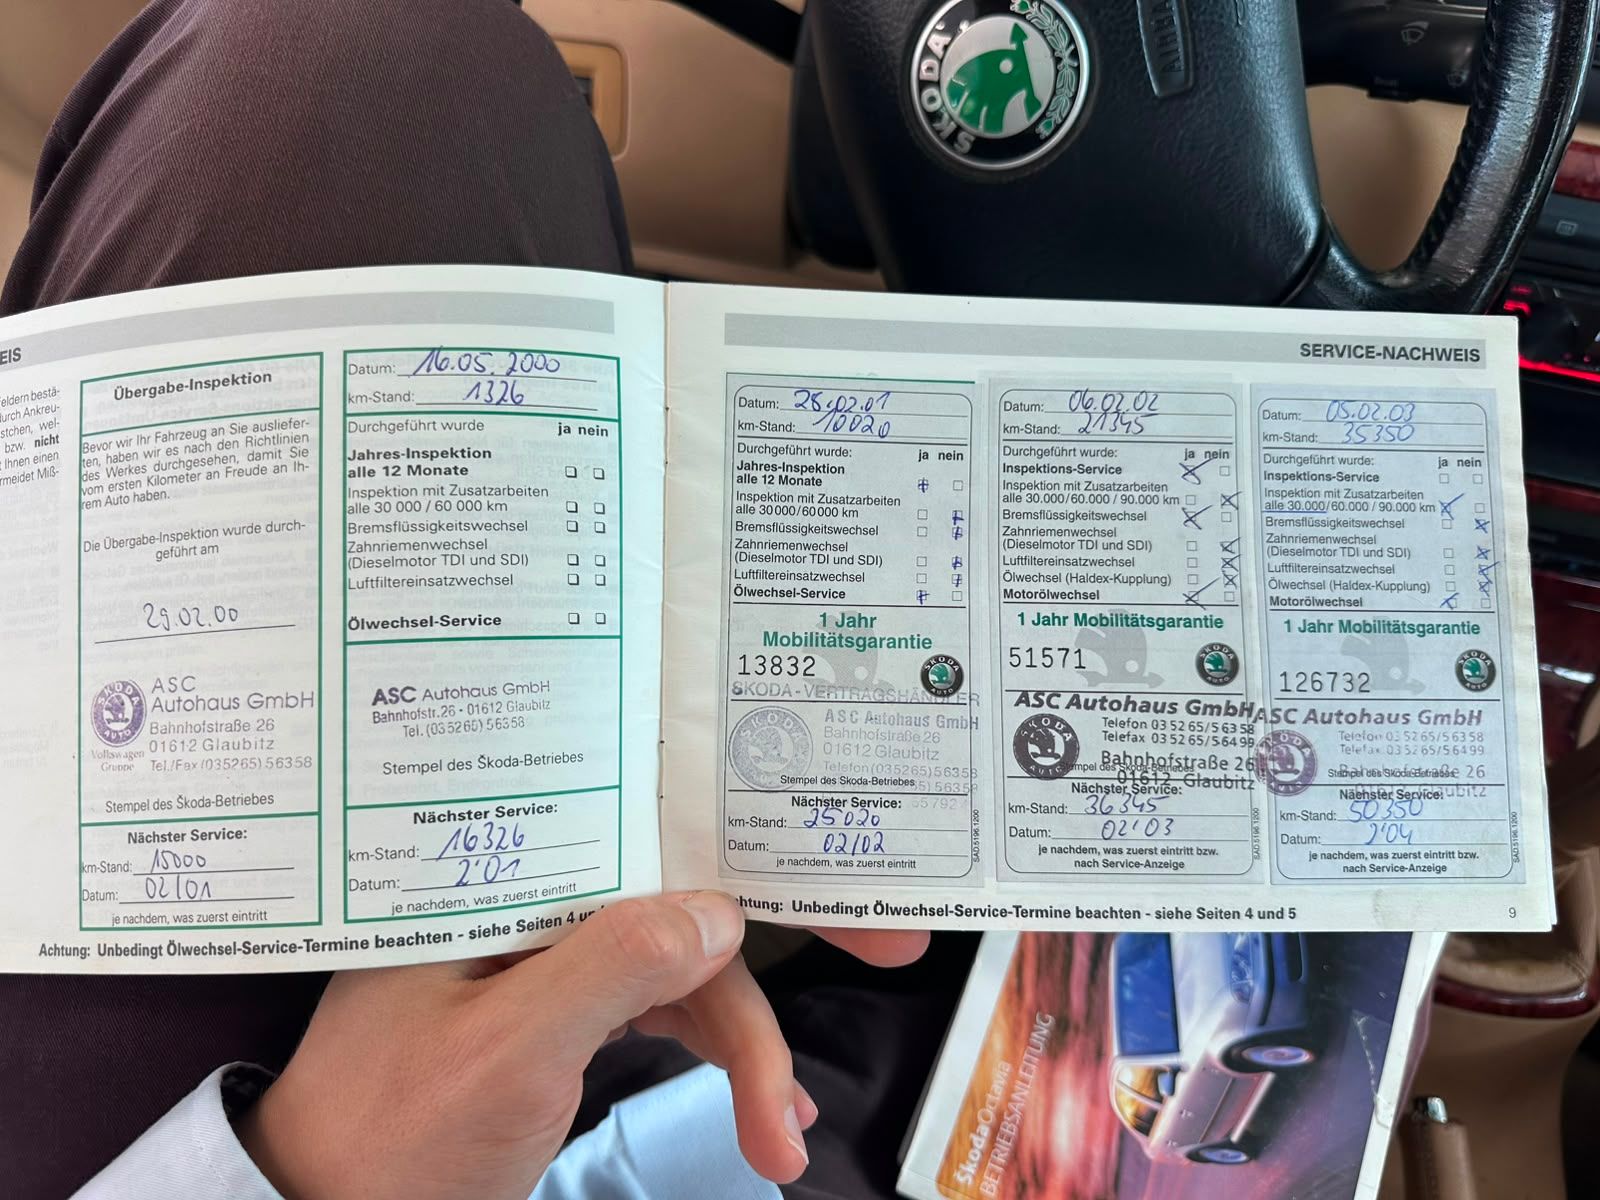 ŠKODA
AUTO
AIRBAG
EIS
eldern bestä-
urch Ankreu-
stchen, wel-
bzw. nicht
t Ihnen einen
rmeidet Miß-
Übergabe-Inspektion
Bevor wir Ihr Fahrzeug an Sie ausliefer-
ten, haben wir es nach den Richtlinien
des Werkes durchgesehen, damit Sie
vom ersten Kilometer an Freude an Ih-
rem Auto haben.
Die Übergabe-Inspektion wurde durch-
geführt am
29.02.00
ŠKODA
Volkswagen
Gruppe
ASC
Autohaus GmbH
Bahnhofstraße 26
01612 Glaubitz
Tel./Fax (035265) 56358
Stempel des Škoda-Betriebes
Nächster Service:
km-Stand: 15000
Datum: 02/01
je nachdem, was zuerst eintritt
Datum: 16.05.2000
km-Stand: 1326
Durchgeführt wurde ja nein
Jahres-Inspektion
alle 12 Monate
Inspektion mit Zusatzarbeiten
alle 30 000 / 60 000 km
Bremsflüssigkeitswechsel
Zahnriemenwechsel
(Dieselmotor TDI und SDI)
Luftfiltereinsatzwechsel
Ölwechsel-Service
ASC Autohaus GmbH
Bahnhofstr. 26 · 01612 Glaubitz
Tel. (035265) 56358
Stempel des Škoda-Betriebes
Nächster Service:
km-Stand: 16326
Datum: 2'01
je nachdem, was zuerst eintritt
Achtung: Unbedingt Ölwechsel-Service-Termine beachten - siehe Seiten 4
SERVICE-NACHWEIS
Datum: 28.02.01
km-Stand: 10020
Durchgeführt wurde: ja nein
Jahres-Inspektion
alle 12 Monate
Inspektion mit Zusatzarbeiten
alle 30 000/60 000 km
Bremsflüssigkeitswechsel
Zahnriemenwechsel
(Dieselmotor TDI und SDI)
Luftfiltereinsatzwechsel
Ölwechsel-Service
1 Jahr
Mobilitätsgarantie
13832
SKODA-VERTRAGSHÄNDLER
ASC Autohaus GmbH
Bahnhofstraße 26
01612 Glaubitz
Telefon (035265) 56358
Stempel des Skoda-Betriebes
Nächster Service:
km-Stand: 25020
Datum: 02/02
je nachdem, was zuerst eintritt
SAD.5196.1200
Datum: 06.02.02
km-Stand: 21345
Durchgeführt wurde: ja nein
Inspektions-Service
Inspektion mit Zusatzarbeiten
alle 30.000/60.000 / 90.000 km
Bremsflüssigkeitswechsel
Zahnriemenwechsel
(Dieselmotor TDI und SDI)
Luftfiltereinsatzwechsel
Ölwechsel (Haldex-Kupplung)
Motorölwechsel
1 Jahr Mobilitätsgarantie
51571
ASC Autohaus GmbH
Telefon 03 52 65/5 63 58
Telefax 03 52 65/5 64 99
Bahnhofstraße 26
01612 Glaubitz
Stempel des Skoda-Betriebes
Nächster Service:
km-Stand: 36345
Datum: 02'03
je nachdem, was zuerst eintritt bzw.
nach Service-Anzeige
SAD.5196.1200
Datum: 05.02.03
km-Stand: 35350
Durchgeführt wurde: ja nein
Inspektions-Service
Inspektion mit Zusatzarbeiten
alle 30.000/60.000 / 90.000 km
Bremsflüssigkeitswechsel
Zahnriemenwechsel
(Dieselmotor TDI und SDI)
Luftfiltereinsatzwechsel
Ölwechsel (Haldex-Kupplung)
Motorölwechsel
1 Jahr Mobilitätsgarantie
126732
ASC Autohaus GmbH
Telefon 03 52 65/5 63 58
Telefax 03 52 65/5 64 99
Bahnhofstraße 26
Glaubitz
Stempel des Skoda-Betriebes
Nächster Service:
km-Stand: 50350
Datum: 2'04
je nachdem, was zuerst eintritt bzw.
nach Service-Anzeige
SAD.5196.1200
chtung: Unbedingt Ölwechsel-Service-Termine beachten - siehe Seiten 4 und 5
9
ŠkodaOctavia
BETRIEBSANLEITUNG